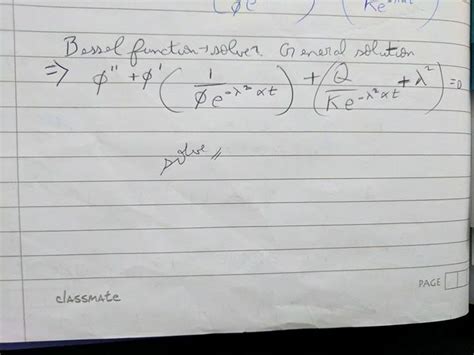 φ
Ke
Bessel function → solver General solution
⇒ φ'' + φ' (1 / φe^{-λ²αt}) + (Q / Ke^{-λ²αt} + λ²) = 0
solve
classmate
PAGE